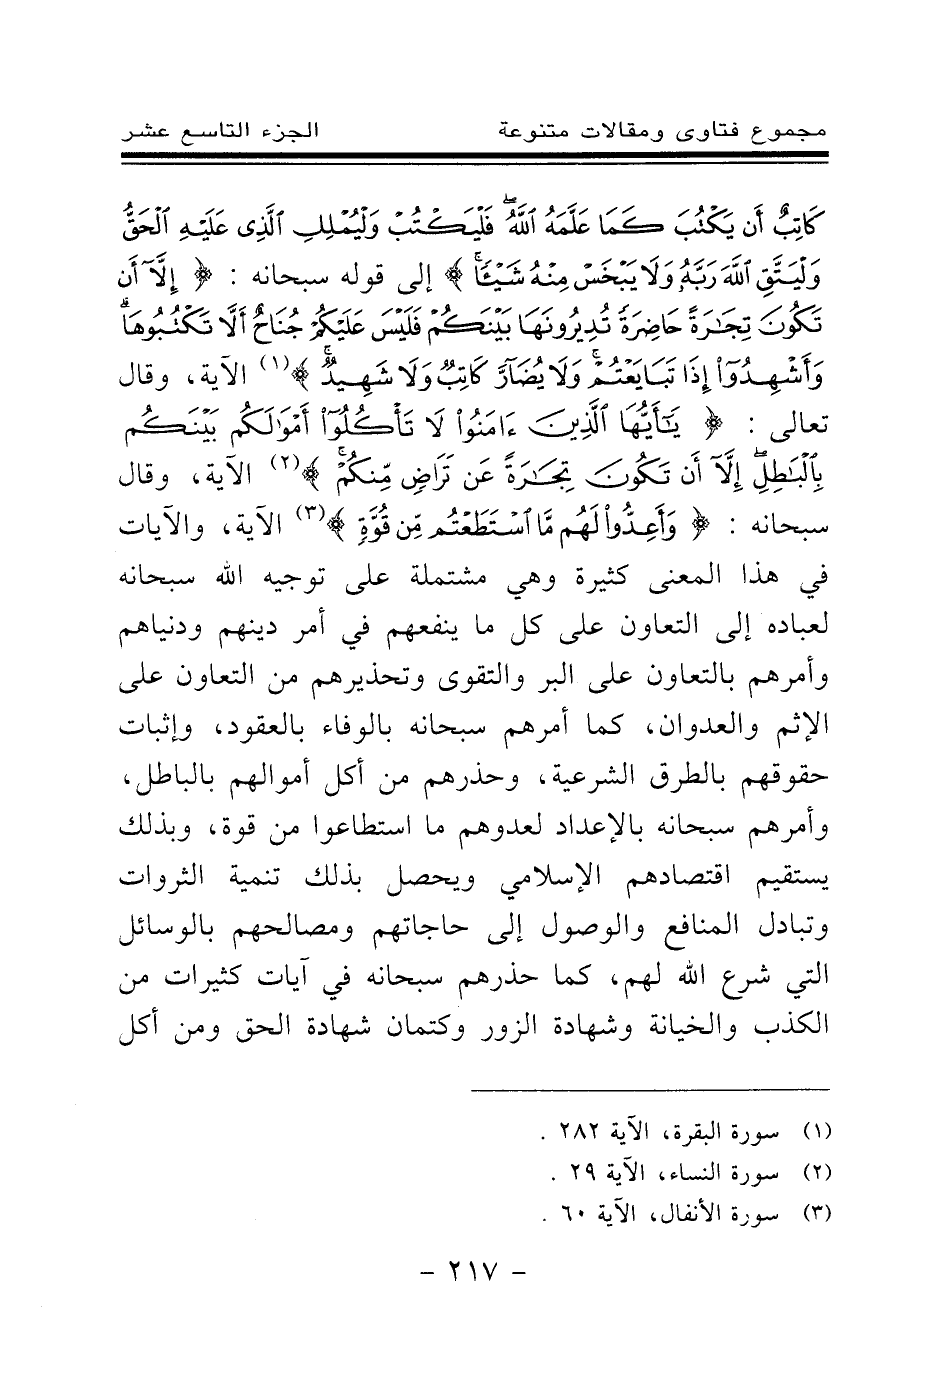 مجموع فتاوى ومقالات متنوعة الجزء التاسع عشر
كَاتِبٌ أَن يَكْتُبَ كَمَا عَلَّمَهُ ٱللَّهُۚ فَلْيَكْتُبْ وَلْيُمْلِلِ ٱلَّذِى عَلَيْهِ ٱلْحَقُّ
وَلْيَتَّقِ ٱللَّهَ رَبَّهُۥ وَلَا يَبْخَسْ مِنْهُ شَيْـًٔاۚ ﴾ إلى قوله سبحانه : ﴿ إِلَّآ أَن
تَكُونَ تِجَـٰرَةً حَاضِرَةً تُدِيرُونَهَا بَيْنَكُمْ فَلَيْسَ عَلَيْكُمْ جُنَاحٌ أَلَّا تَكْتُبُوهَاۗ
وَأَشْهِدُوٓا۟ إِذَا تَبَايَعْتُمْۚ وَلَا يُضَآرَّ كَاتِبٌ وَلَا شَهِيدٌۚ ﴾(١) الآية، وقال
تعالى : ﴿ يَـٰٓأَيُّهَا ٱلَّذِينَ ءَامَنُوا۟ لَا تَأْكُلُوٓا۟ أَمْوَٰلَكُم بَيْنَكُم
بِٱلْبَـٰطِلِۖ إِلَّآ أَن تَكُونَ تِجَـٰرَةً عَن تَرَاضٍ مِّنكُمْۚ ﴾(٢) الآية، وقال
سبحانه : ﴿ وَأَعِدُّوا۟ لَهُم مَّا ٱسْتَطَعْتُم مِّن قُوَّةٍ ﴾(٣) الآية، والآيات
في هذا المعنى كثيرة وهي مشتملة على توجيه الله سبحانه
لعباده إلى التعاون على كل ما ينفعهم في أمر دينهم ودنياهم
وأمرهم بالتعاون على البر والتقوى وتحذيرهم من التعاون على
الإثم والعدوان، كما أمرهم سبحانه بالوفاء بالعقود، وإثبات
حقوقهم بالطرق الشرعية، وحذرهم من أكل أموالهم بالباطل،
وأمرهم سبحانه بالإعداد لعدوهم ما استطاعوا من قوة، وبذلك
يستقيم اقتصادهم الإسلامي ويحصل بذلك تنمية الثروات
وتبادل المنافع والوصول إلى حاجاتهم ومصالحهم بالوسائل
التي شرع الله لهم، كما حذرهم سبحانه في آيات كثيرات من
الكذب والخيانة وشهادة الزور وكتمان شهادة الحق ومن أكل
(١) سورة البقرة، الآية ٢٨٢ .
(٢) سورة النساء، الآية ٢٩ .
(٣) سورة الأنفال، الآية ٦٠ .
- ٢١٧ -